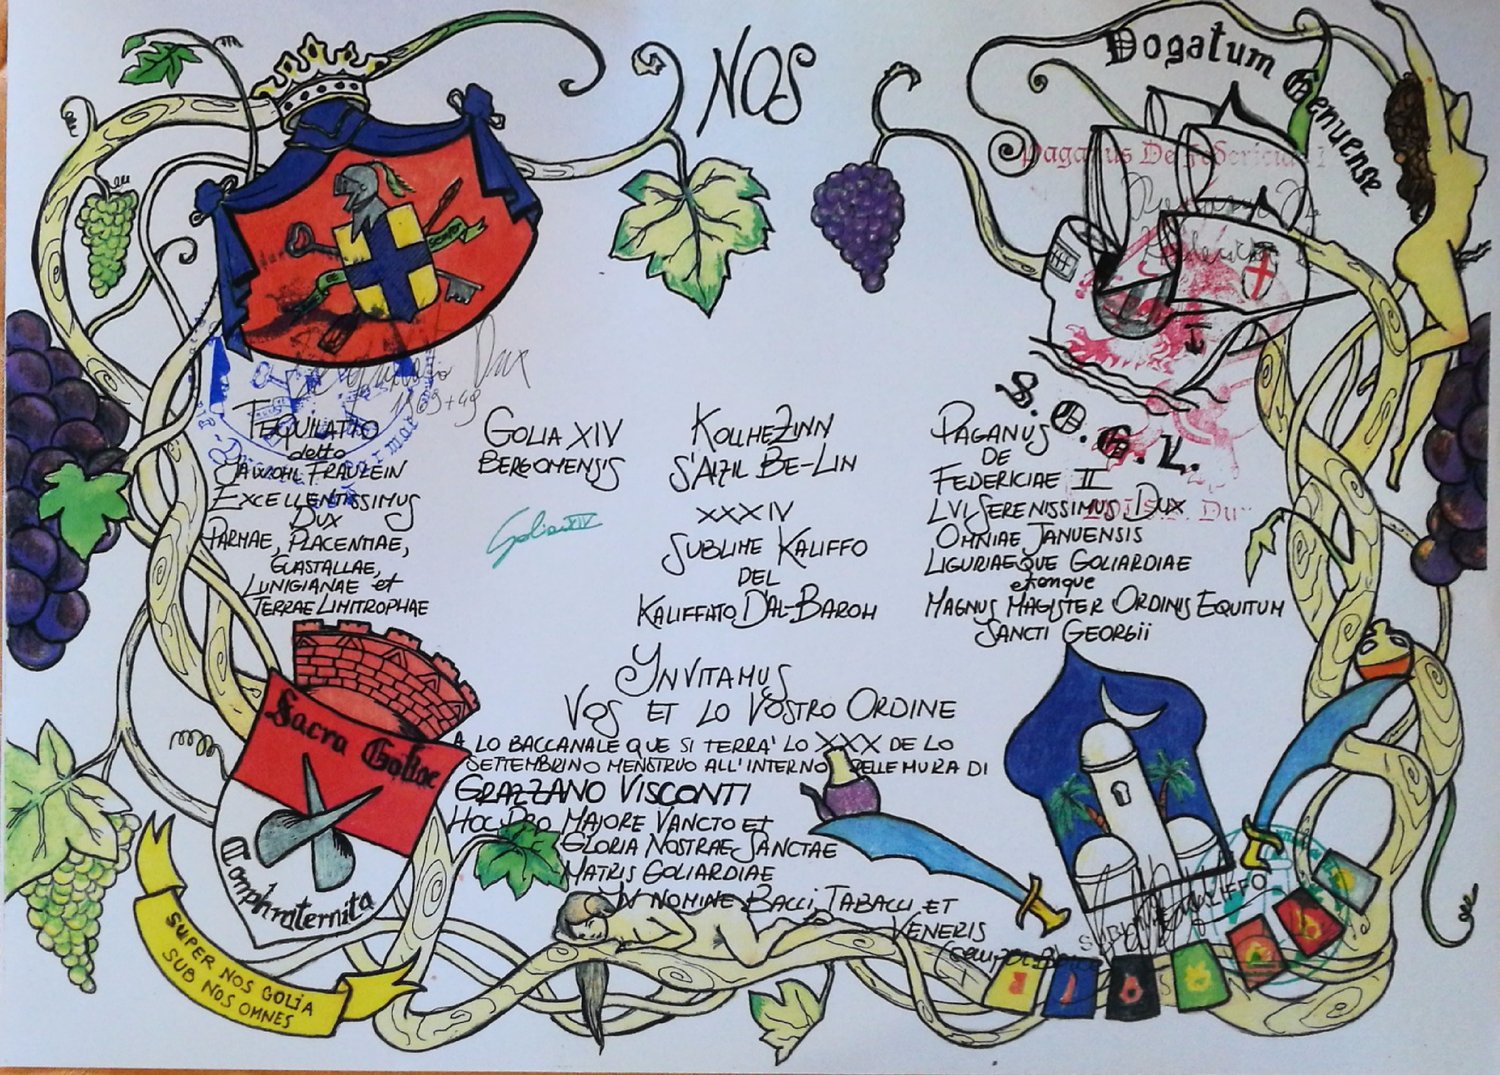 NOS
Dogatum Genuense
Paganus De Federiciae
SEMPER
Dux
1969+49
TEQUILATTO
detto
JAWOHL FRÄULEIN
EXCELLENTISSIMUS
DUX
PARMAE, PLACENTIAE,
GUASTALLAE,
LUNIGIANAE et
TERRAE LIMITROPHAE
GOLIA XIV
BERGOMENSIS
Golia XIV
KOLLHEZINN
S'ALZIL BE-LIN
XXXIV
SUBLIME KALIFFO
DEL
KALIFFATO D'AL-BAROH
S. O. G. L.
PAGANUS
DE
FEDERICIAE II
LVI SERENISSIMUS DUX
OMNIAE JANUENSIS
LIGURIAEQUE GOLIARDIAE
etonque
MAGNUS MAGISTER ORDINIS EQUITUM
SANCTI GEORGII
YNVITAMUS
VOS ET LO VOSTRO ORDINE
A LO BACCANALE QUE SI TERRA' LO XXX DE LO
SETTEMBRINO MENSTRUO ALL'INTERNO DELLE MURA DI
GRAZZANO VISCONTI
HOC PRO MAJORE VANCTO ET
GLORIA NOSTRAE SANCTAE
MATRIS GOLIARDIAE
IN NOMINE BACCI, TABACCI ET
VENERIS
Sacra Goliae
Comphraternita
SUPER NOS GOLIA
SUB NOS OMNES
SUBLIME KALIFFO